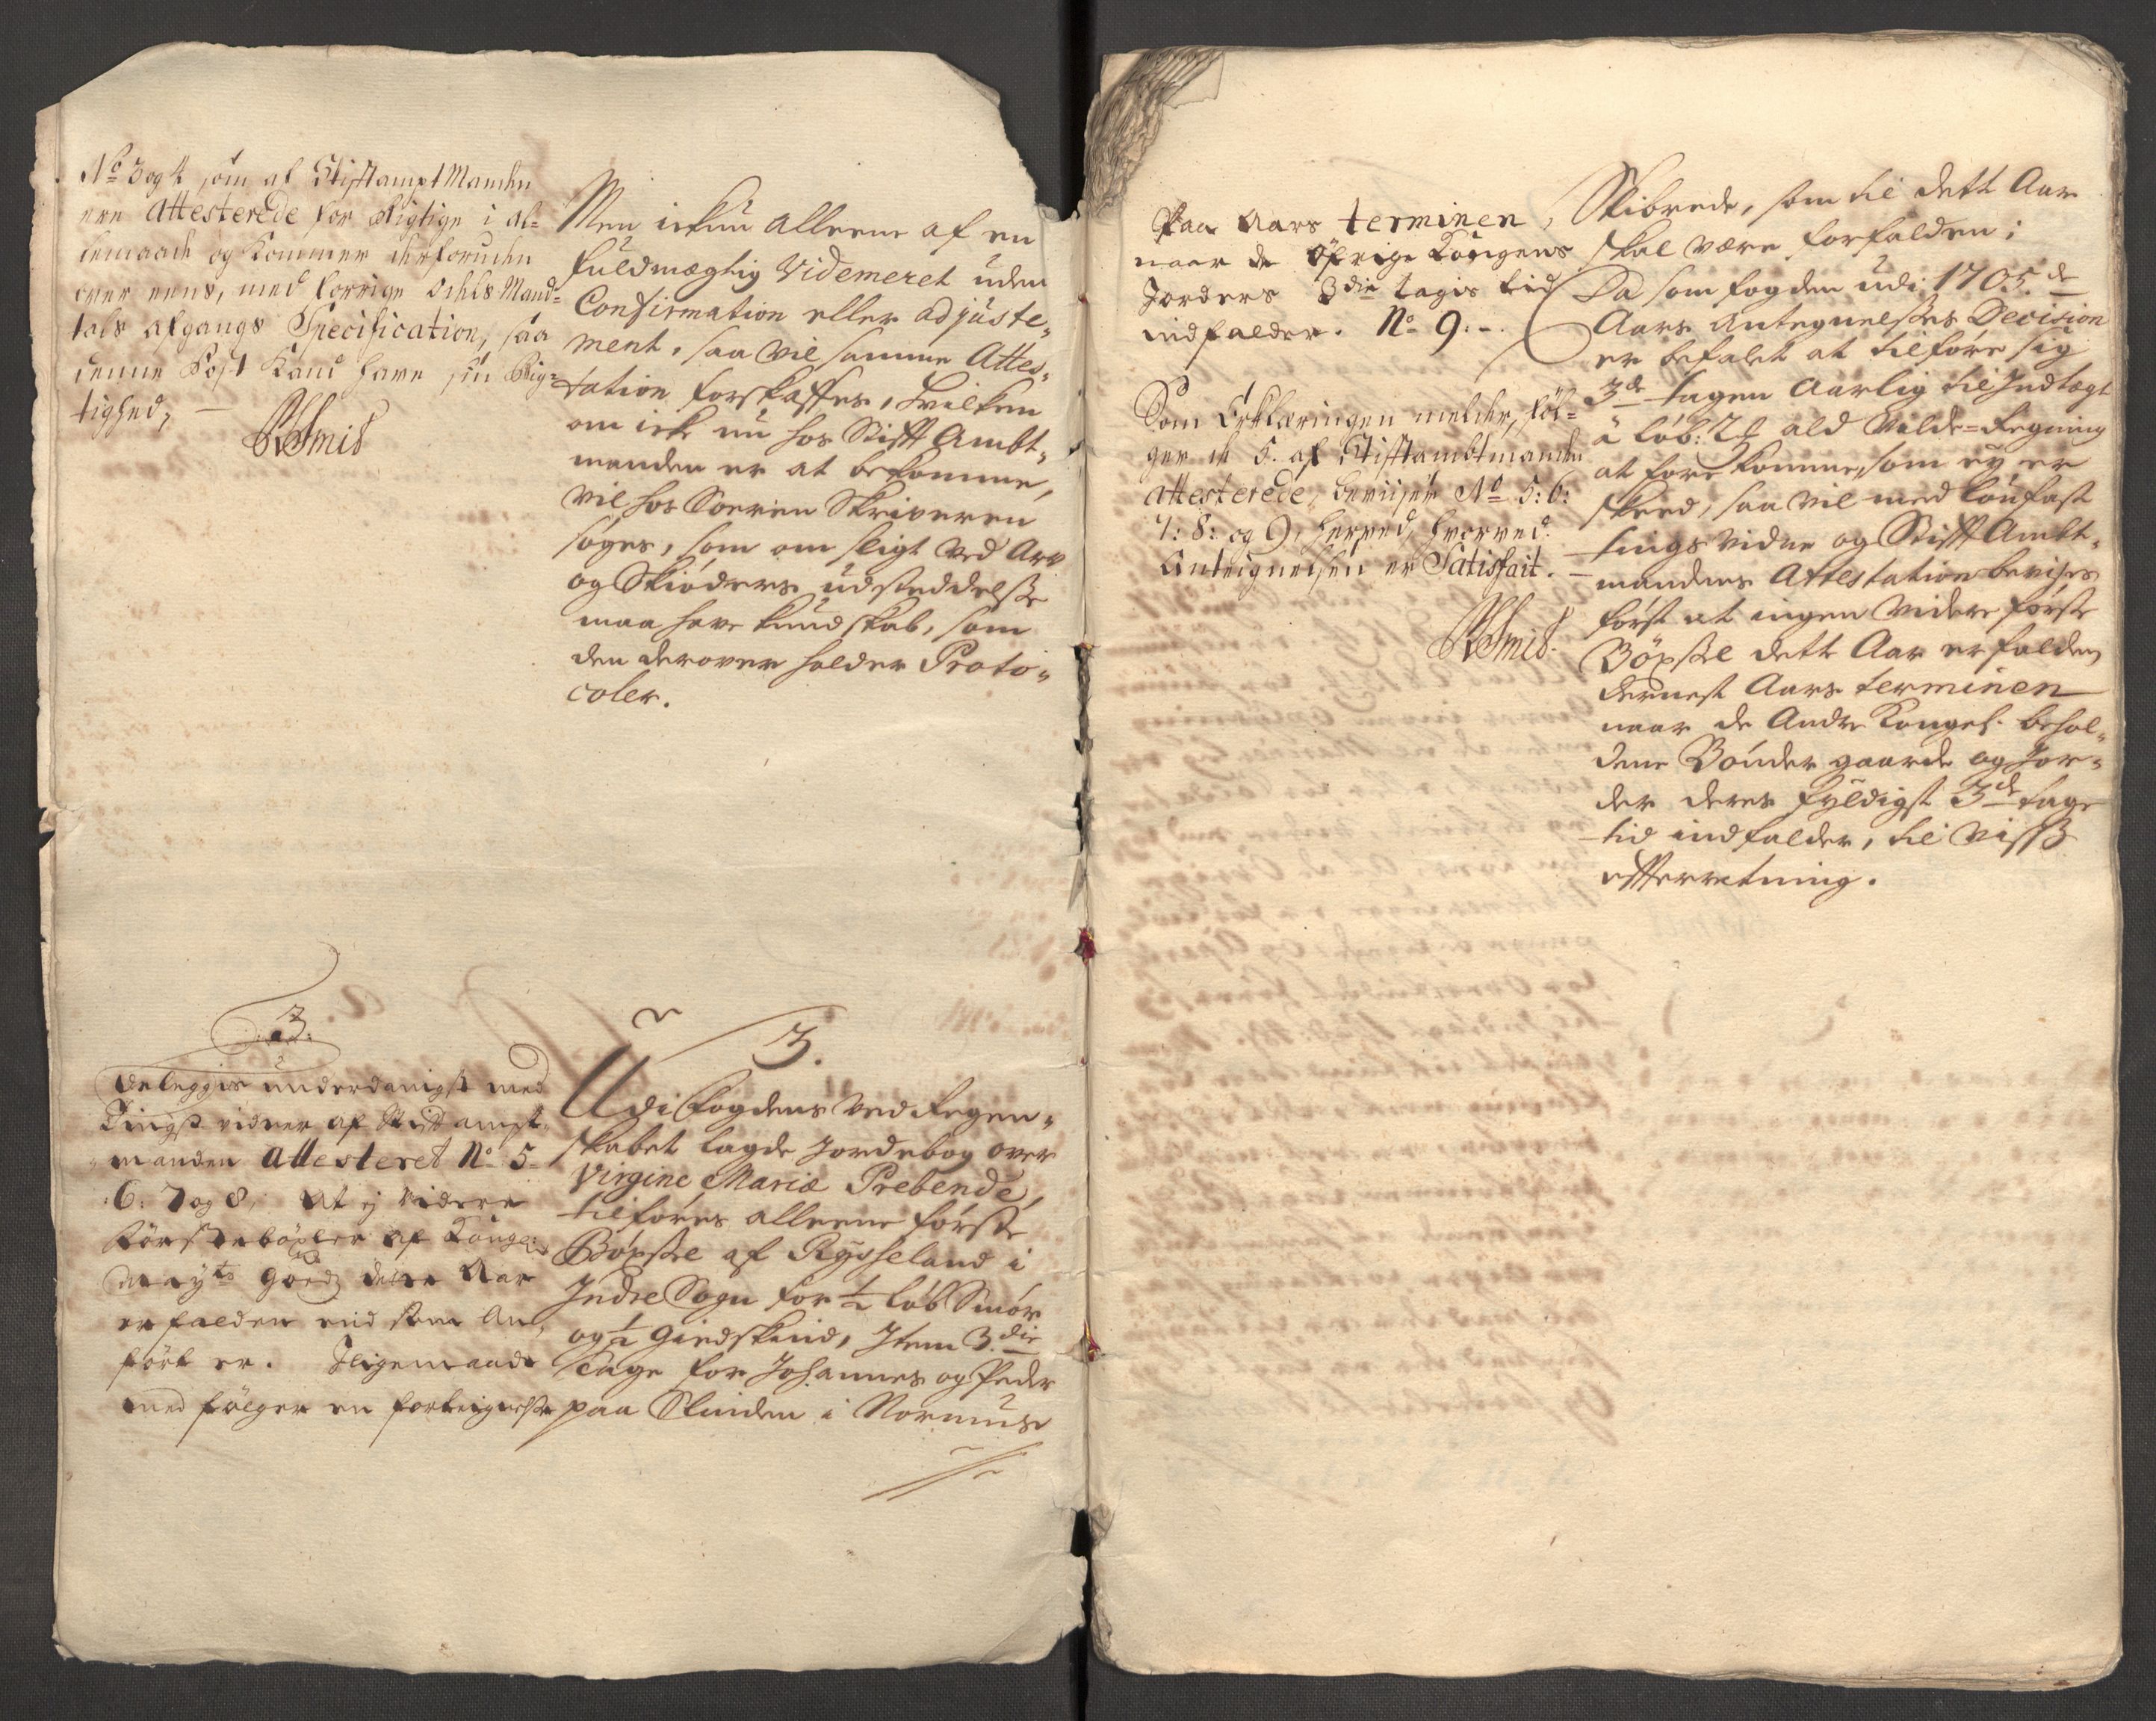 No 3 og 4 som af StifftamptManden
ere Attesterede for Rigtige i al-
lemaade og kommer derforuden
over eens, med forrige Odels Mand-
tals afgangs Specification, saa
denne Post kand have sin Rig-
tighed,
RSmid
Men ickun alleene af en
fuldmægtig Videmeret uden
Confirmation eller adjuste-
ment, saa vil samme Attes-
tation forskaffes, hvilken
om icke nu hos Stifft Ambt-
manden er at bekomme,
vil hos Soeren Skriveren
søges, som om sligt ved Arv
og Skiøders udsteddelsse
maa have kundskab, som
den derover holder Proto-
coler.
3.
Deleggis underdanigst med
Tingsvidner af Stiftampt-
manden Attesteret No 5
6: 7 og 8, at ej videre
Førstebøxler af Konge:
May:ts Gods dette Aar
er falden end som An-
ført er. Ligemaade
med følger en forteignelsse
3.
Udi fogdens ved Regen-
skabet lagde Jordebog over
Virgine Mariæ Prebende,
tilføres alleene første
Bøxsel af Rysseland i
Indre Sogn for 1/2 løb Smør
og 1/2 Giedskind, Item 3.die
Tage for Johannes og Peder
paa Skinden i Mornuus
Paa Aars terminen,
naar de Øfrige Kongens
Jorders 3die tagis tid
indfalder. No 9.
Som Erklæringen melder, føl-
ger de 5. af Stifftambtmanden
attesterede beviiser No 5: 6:
7: 8: og 9, herved, hvorved
Anteignelsen er Satisfait.
RSmid.
Skibrede, som til dette Aar
skal være forfalden;
Da som fogden udi 1705.de
Aars Antegnelsses Decision
er befalet at tilføre sig
3.de tagen Aarlig til Indtægt
á løb: 24 ald Vilde-Regning
at forekomme, som ey er
skeed, saa vil med loufast
tingsvidne og Stifft Ambt-
mandens Attestation bevises
først at ingen videre første
Bøxsel dette Aar er falden
dernest Aars terminen
naar de Andre Kongel. behol-
dene Bønder gaarde og Jor-
der deres fyldigst 3de tage
tid indfalder, til visse
efterretning.